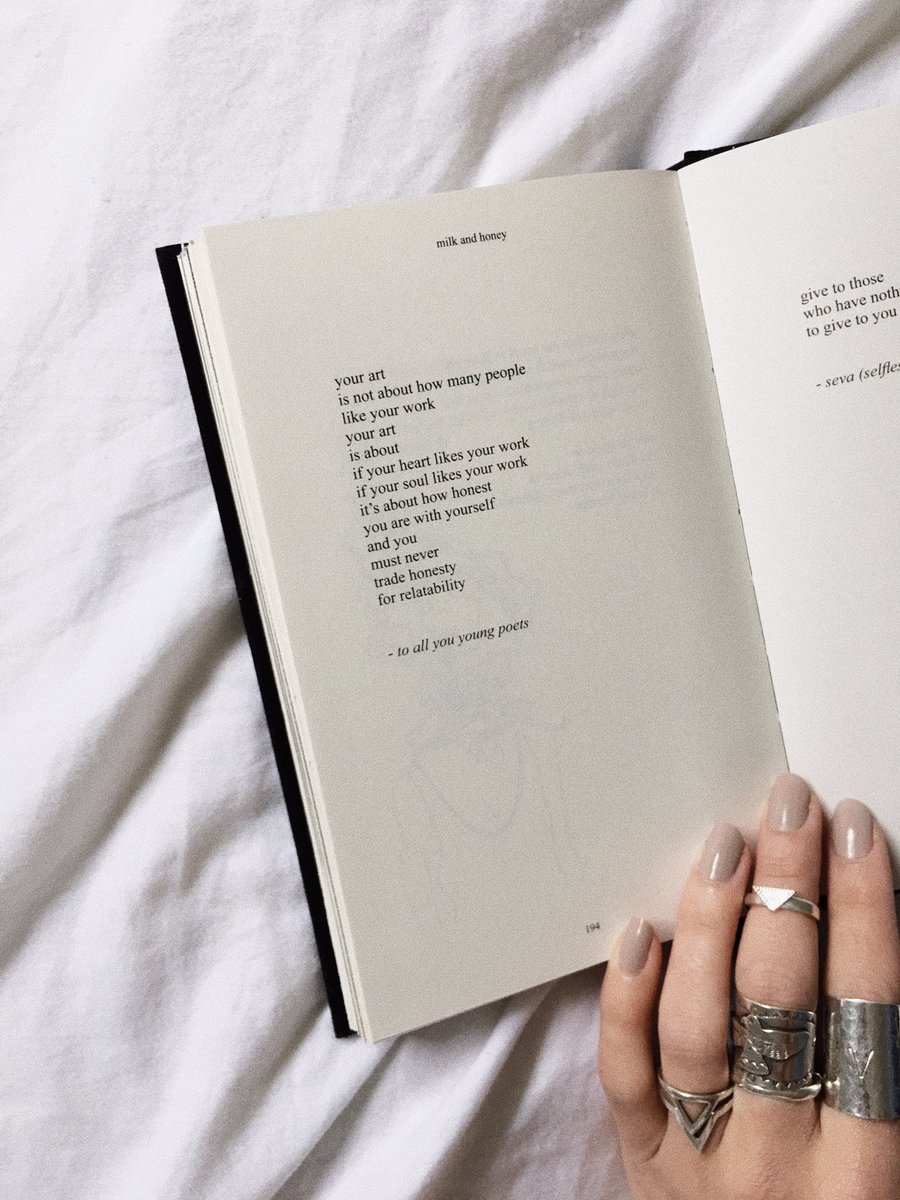 milk and honey
your art
is not about how many people
like your work
your art
is about
if your heart likes your work
if your soul likes your work
it's about how honest
you are with yourself
and you
must never
trade honesty
for relatability
- to all you young poets
194
give to those
who have noth
to give to you
- seva (selfles